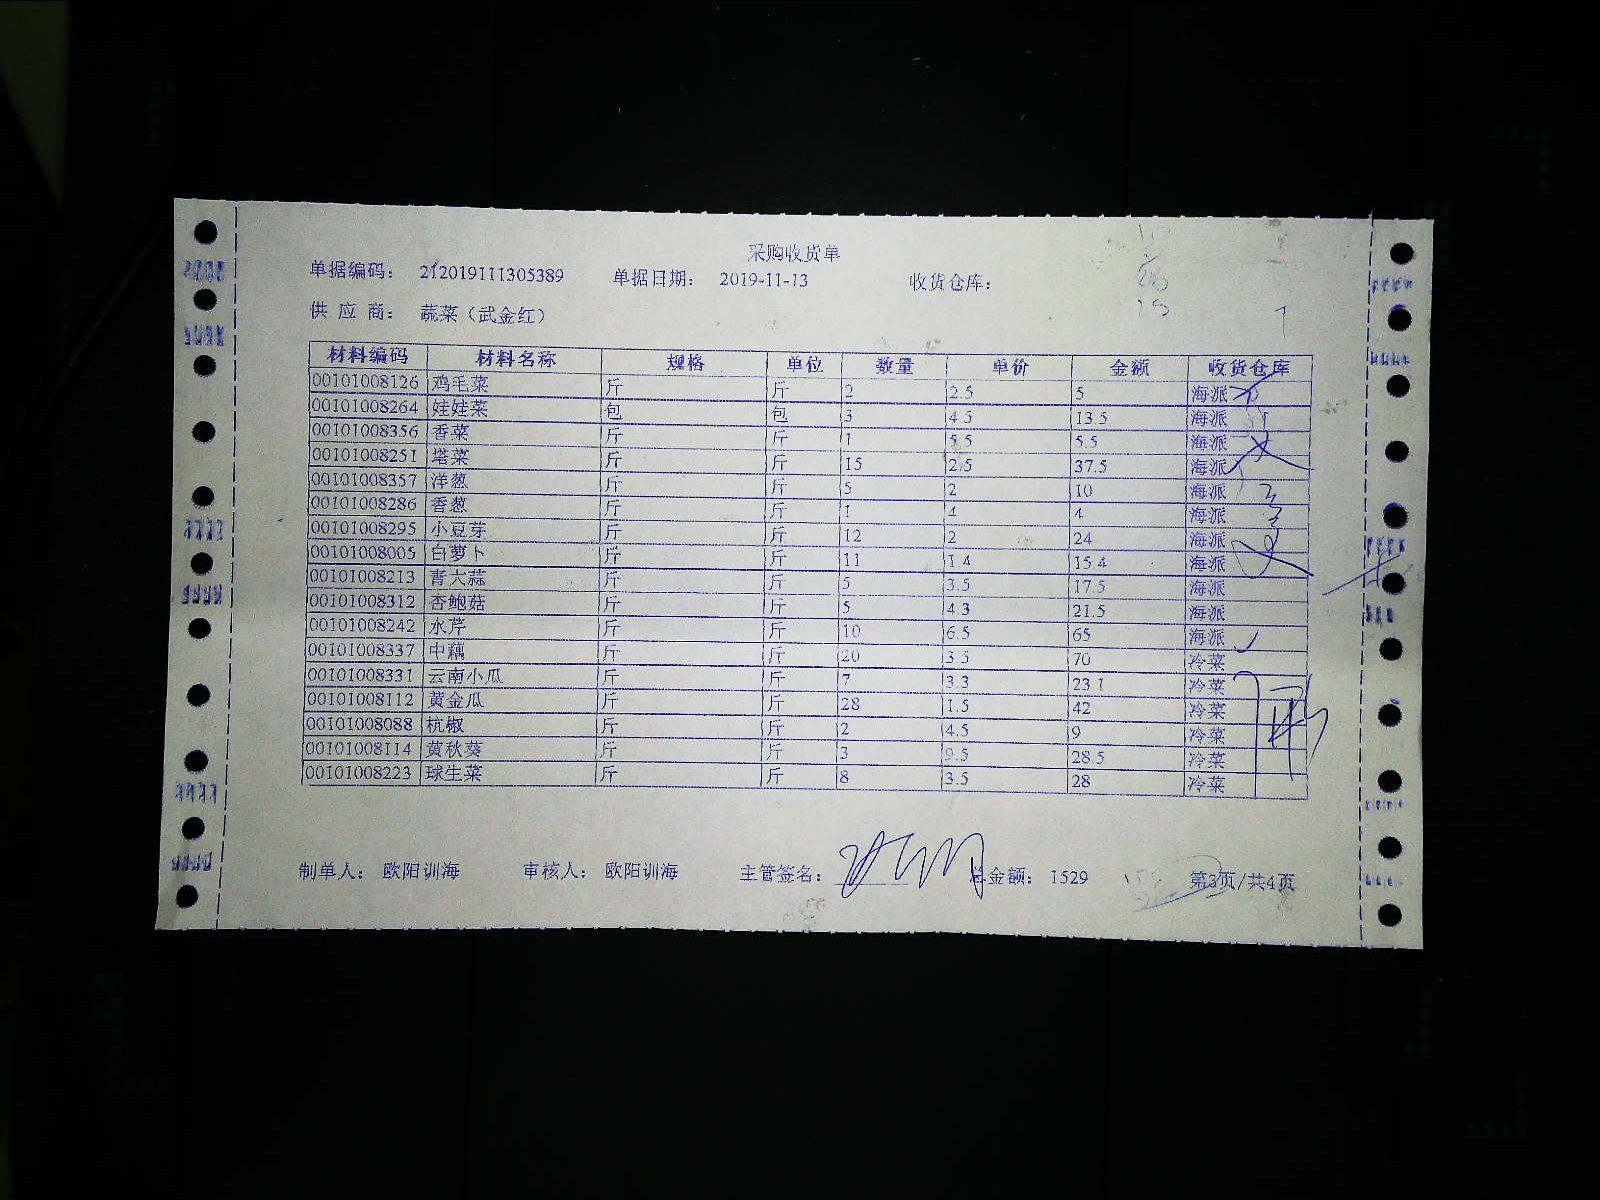 采购收货单
单据编码： 212019111305389 单据日期： 2019-11-13 收货仓库：
供 应 商： 蔬菜（武金红）
材料编码 材料名称 规格 单位 数量 单价 金额 收货仓库
00101008126 鸡毛菜 斤 斤 2 2.5 5 海派
00101008264 娃娃菜 包 包 3 4.5 13.5 海派
00101008356 香菜 斤 斤 1 5.5 5.5 海派
00101008251 塔菜 斤 斤 15 2.5 37.5 海派
00101008357 洋葱 斤 斤 5 2 10 海派
00101008286 香葱 斤 斤 1 4 4 海派
00101008295 小豆芽 斤 斤 12 2 24 海派
00101008005 白萝卜 斤 斤 11 1.4 15.4 海派
00101008213 青大蒜 斤 斤 5 3.5 17.5 海派
00101008312 杏鲍菇 斤 斤 5 4.3 21.5 海派
00101008242 水芹 斤 斤 10 6.5 65 海派
00101008337 中藕 斤 斤 20 3.5 70 冷菜
00101008331 云南小瓜 斤 斤 7 3.3 23.1 冷菜
00101008112 黄金瓜 斤 斤 28 1.5 42 冷菜
00101008088 杭椒 斤 斤 2 4.5 9 冷菜
00101008114 黄秋葵 斤 斤 3 9.5 28.5 冷菜
00101008223 球生菜 斤 斤 8 3.5 28 冷菜
制单人： 欧阳训海 审核人： 欧阳训海 主管签名： 总金额： 1529 第3页/共4页